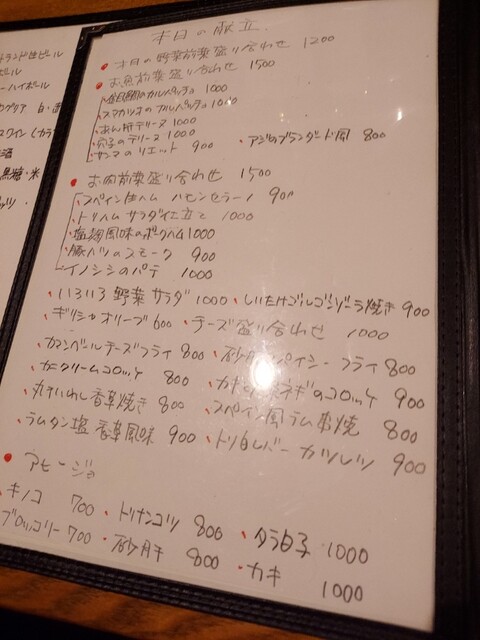 本日の献立
トランド生ビール
ビール
ーハイボール
カゲリア 白・赤
スワイン(カラ
酒
黒糖・米
ッツ・
本日の野菜前菜盛り合わせ 1200
お魚前菜盛り合わせ 1500
のカルパッチョ 1000
スマガツオのカルパッチョ 1000
あん肝テリーヌ 1000
穴子のテリーヌ 1000
サンマのリエット 900 ・アジのブランダード風 800
お肉前菜盛り合わせ 1500
スペイン生ハム ハモンセラーノ 900
トリハム サラダ仕立て 1000
塩麹風味のポークハム 1000
豚ハツのスモーク 900
イノシシのパテ 1000
いろいろ野菜サラダ 1000 ・しいたけゴルゴンゾーラ焼き 900
ギリシャオリーブ 600 ・チーズ盛り合わせ 1000
カマンベールチーズフライ 800 ・砂肝スパイシーフライ 800
カニクリームコロッケ 800 ・ネギのコロッケ 900
丸干いわし香草焼き 800 ・スペイン風ラム串焼 800
ラムタン塩 香草風味 900 ・トリ白レバーカツレツ 900
アヒージョ
キノコ 700 ・トリナンコツ 800 ・タラ白子 1000
ブロッコリー 700 ・砂肝 800 ・カキ 1000